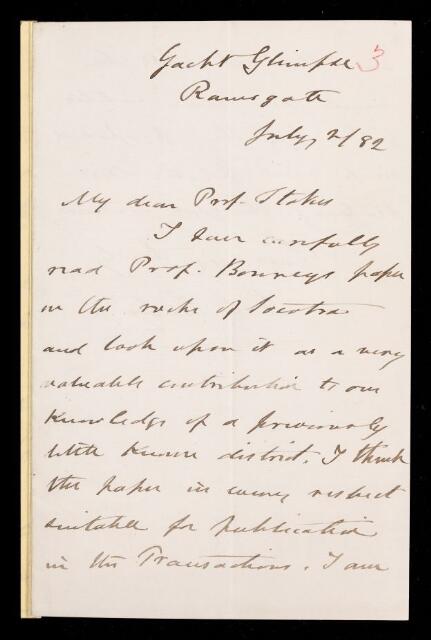 Yacht Glimpse 3
Ramsgate
July, 2/82
My dear Prof. Stokes
I have carefully
read Prof. Bonneys paper
on the rocks of Socotra
and look upon it as a very
valuable contribution to our
knowledge of a previously
little known district. I think
the paper in every respect
suitable for publication
in the Transactions. I am